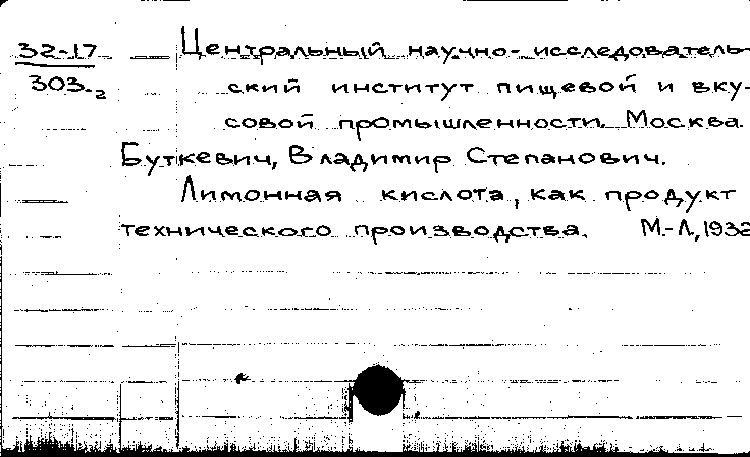 32-17 Центральный научно-исследователь-
303.2 ский институт пищевой и вку-
совой промышленности. Москва.
Буткевич, Владимир Степанович.
Лимонная кислота, как продукт
технического производства. М.-Л., 1932